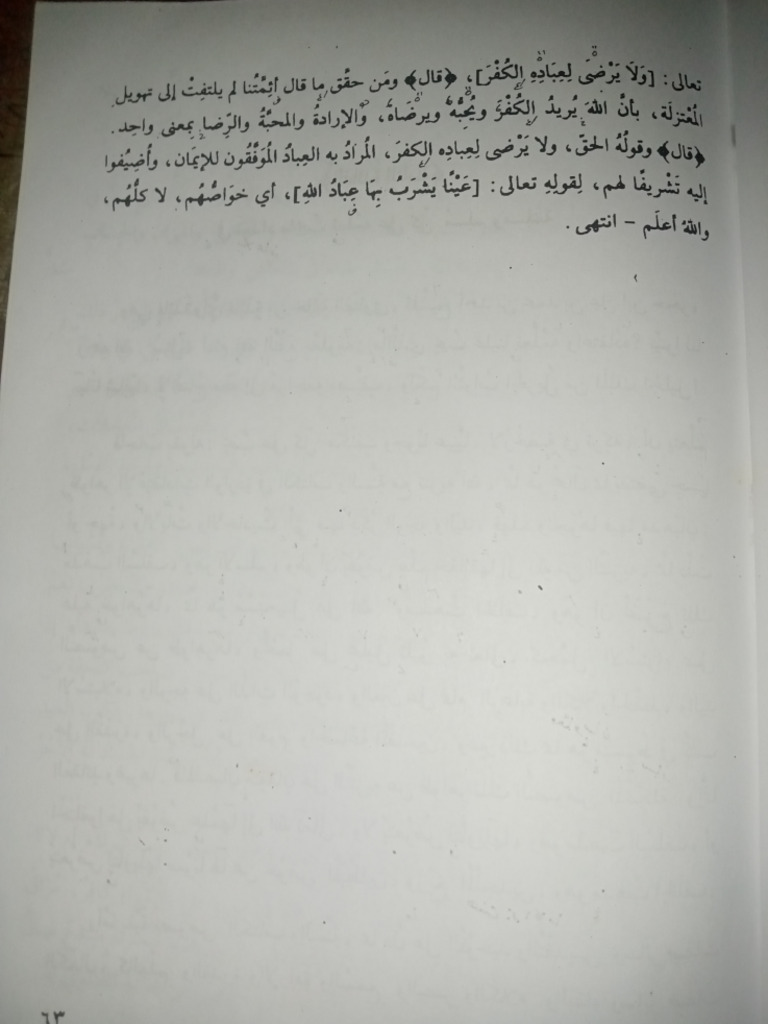 تعالى: [وَلَا يَرْضَى لِعِبَادِهِ الكُفْرَ]، ﴿قال﴾ ومَن حقَّق ما قال أئِمَّتُنا لم يلتفِتْ إلى تهويل
المُعْتزلَة، بأنَّ اللهَ يُريدُ الكُفْرَ ويُحِبُّه ويرضَاهُ، والإرادةُ والمحبَّةُ والرِّضا بمعنى واحِد.
﴿قال﴾ وقولُهُ الحقّ، ولا يَرْضى لِعبادِه الكفرَ، المُرادُ به العِبادُ المُوَفَّقُون للإيمَان، وأُضِيفُوا
إليه تَشْريفًا لهم، لِقولِهِ تعالى: [عَيْنًا يَشْرَبُ بِهَا عِبَادُ اللهِ]، أي خوَاصُّهُم، لا كلُّهُم،
واللهُ أعلَم – انتهى.
٦٣